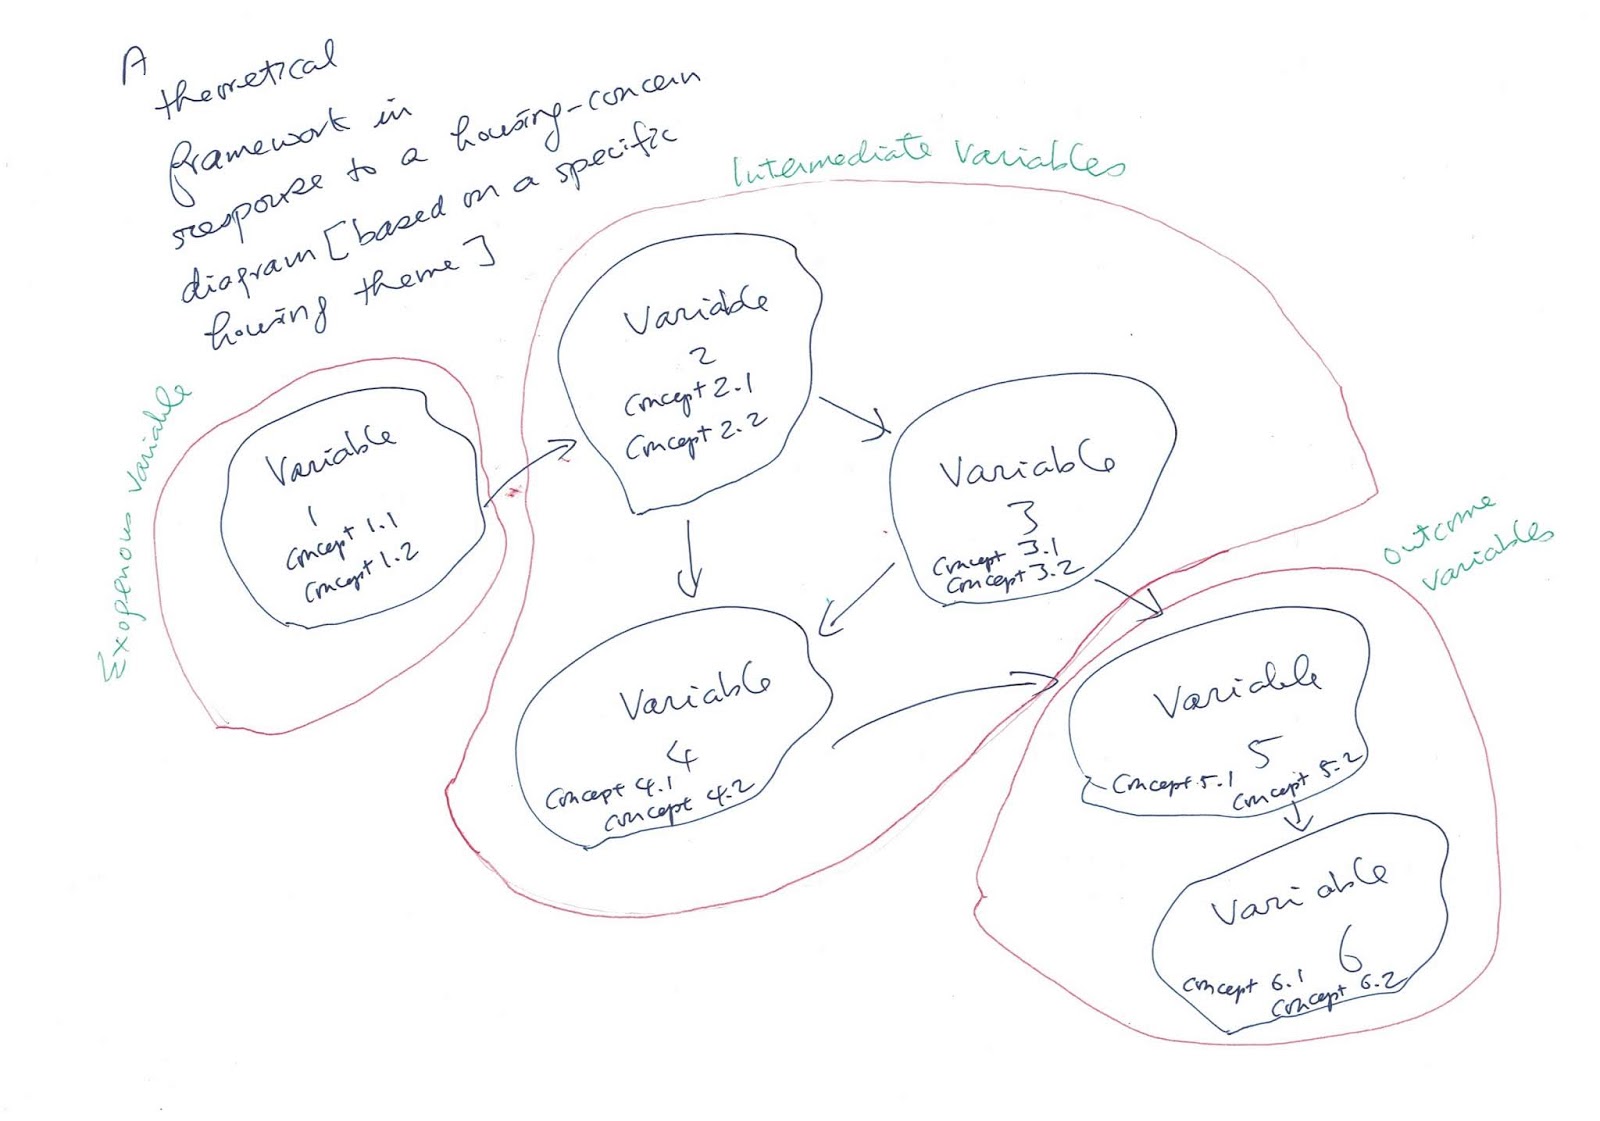 A
theoretical
framework in
response to a housing-concern
diagram [based on a specific
housing theme]
Intermediate Variables
Exogenous Variable
Outcome
Variables
Variable
1
Concept 1.1
Concept 1.2
Variable
2
Concept 2.1
Concept 2.2
Variable
3
Concept 3.1
Concept 3.2
Variable
4
Concept 4.1
Concept 4.2
Variable
5
Concept 5.1
Concept 5.2
Variable
6
Concept 6.1
Concept 6.2